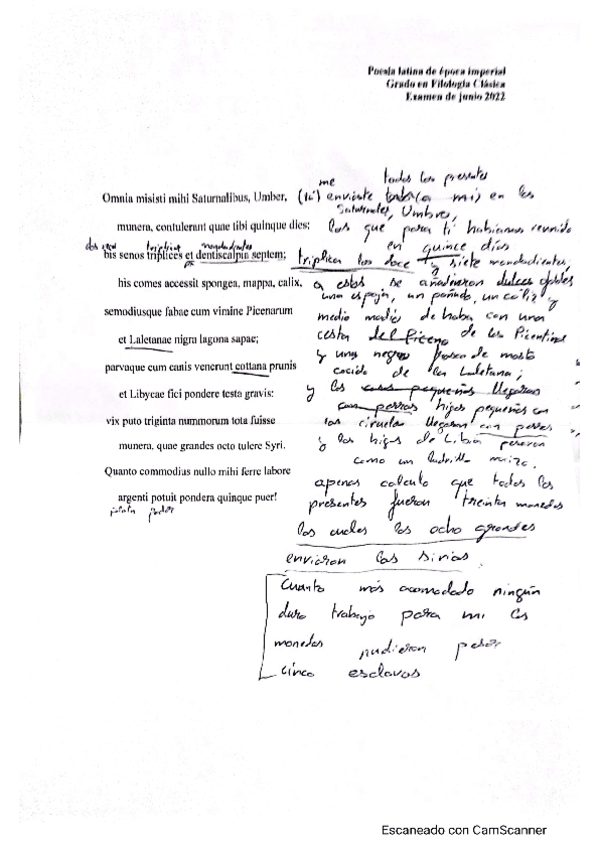 Poesía latina de época imperial
Grado en Filología Clásica
Examen de junio 2022
Omnia misisti mihi Saturnalibus, Umber,
munera, contulerunt quae tibi quinque dies:
bis senos triplices et dentiscalpia septem;
his comes accessit spongea, mappa, calix,
semodiusque fabae cum vimine Picenarum
et Laletanae nigra lagona sapae;
parvaque cum canis venerunt cottana prunis
et Libycae fici pondere testa gravis:
vix puto triginta nummorum tota fuisse
munera, quae grandes octo tulere Syri.
Quanto commodius nullo mihi ferre labore
argenti potuit pondera quinque puer!
plata poder
me todos los presentes
(tú) enviaste (a mí) en las
Saturnales, Umbro,
los que para ti habíamos reunido
en quince días
triplica los doce y siete mondadientes,
a estos se añadieron
una esponja, un pañuelo, un cáliz y
medio modio de haba con una
cesta del Piceno de los Picentinos
y una negra de mosto
cocido de la Laletana;
y los cosas pequeñas llegaron
con perros higos pequeños con
las ciruelas llegaron con perros
y los higos de Libia pesaron
como un ladrillo
apenas calculo que todos los
presentes fueron treinta monedas
los cuales los ocho grandes
enviaron los sirios.
Cuanto más acomodado ningún
duro trabajo para mi las
monedas pudieron pesar
cinco esclavos
Escaneado con CamScanner